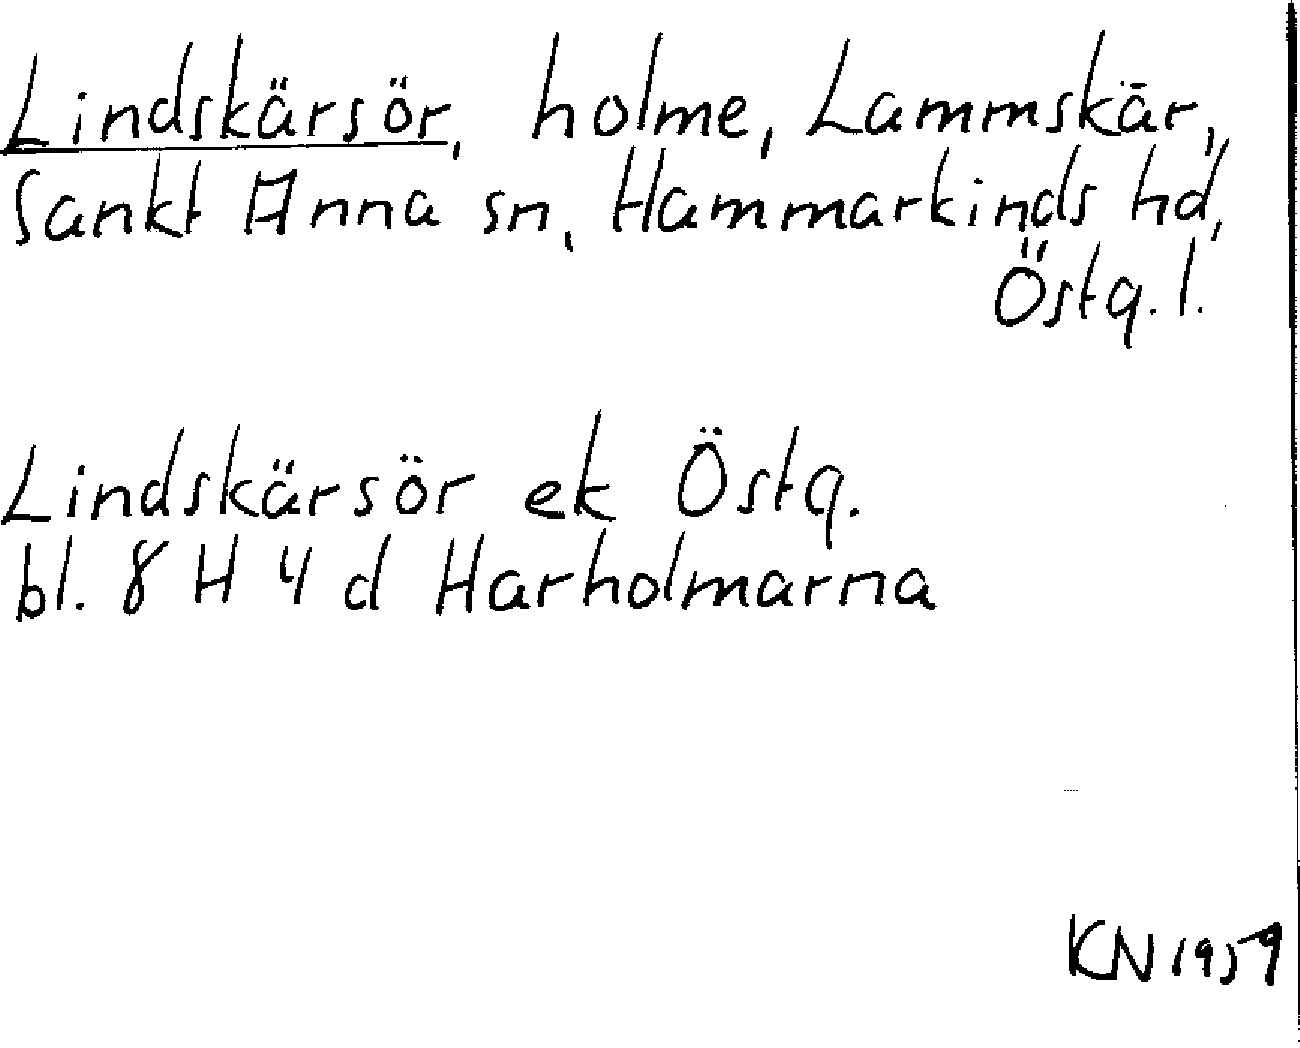 Lindskärsör, holme, Lammskär,
Sankt Anna sn, Hammarkinds hd,
Östg. l.
Lindskärsör ek Östg.
bl. 8 H 4 d Harholmarna
KN 1959